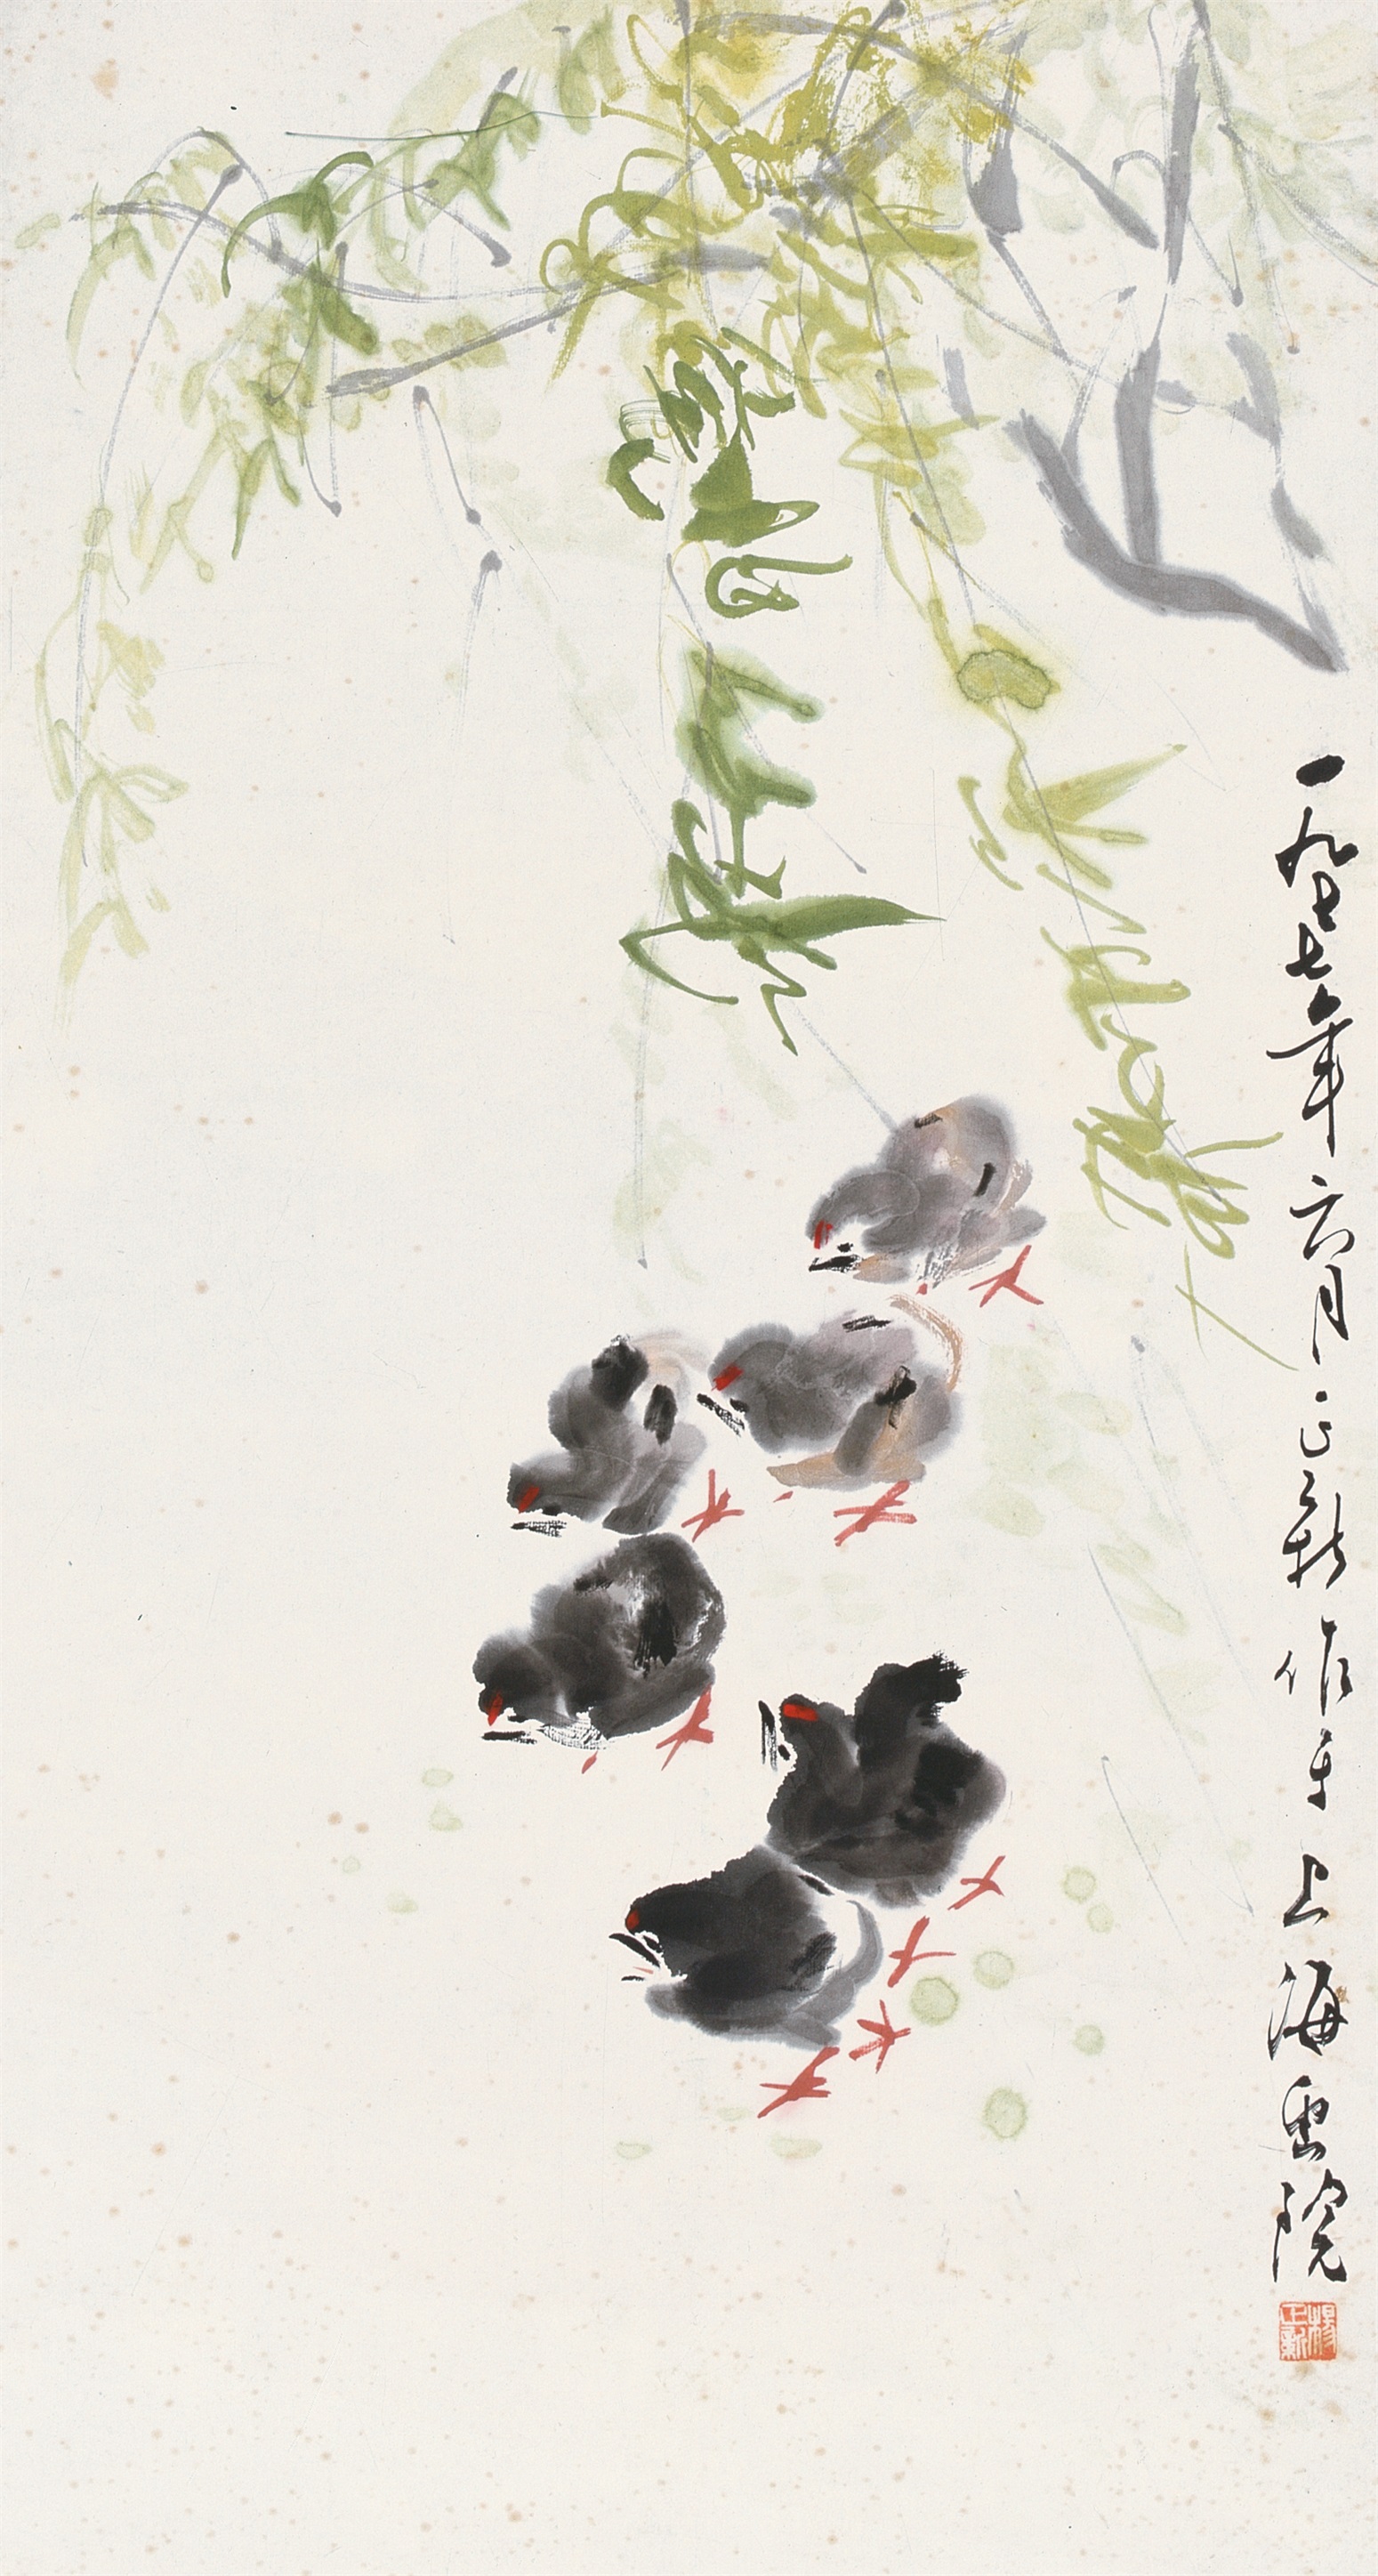 一九七七年六月正新作于上海画院
楊正新